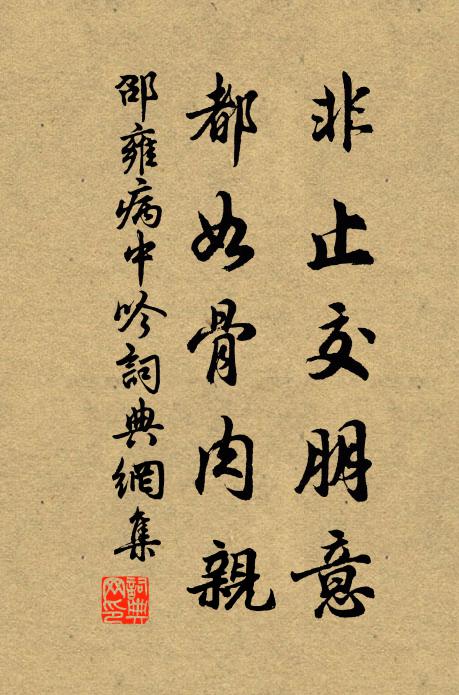 非止交朋意
都如骨肉親
邵雍病中吟詞典網集
詞典
網印